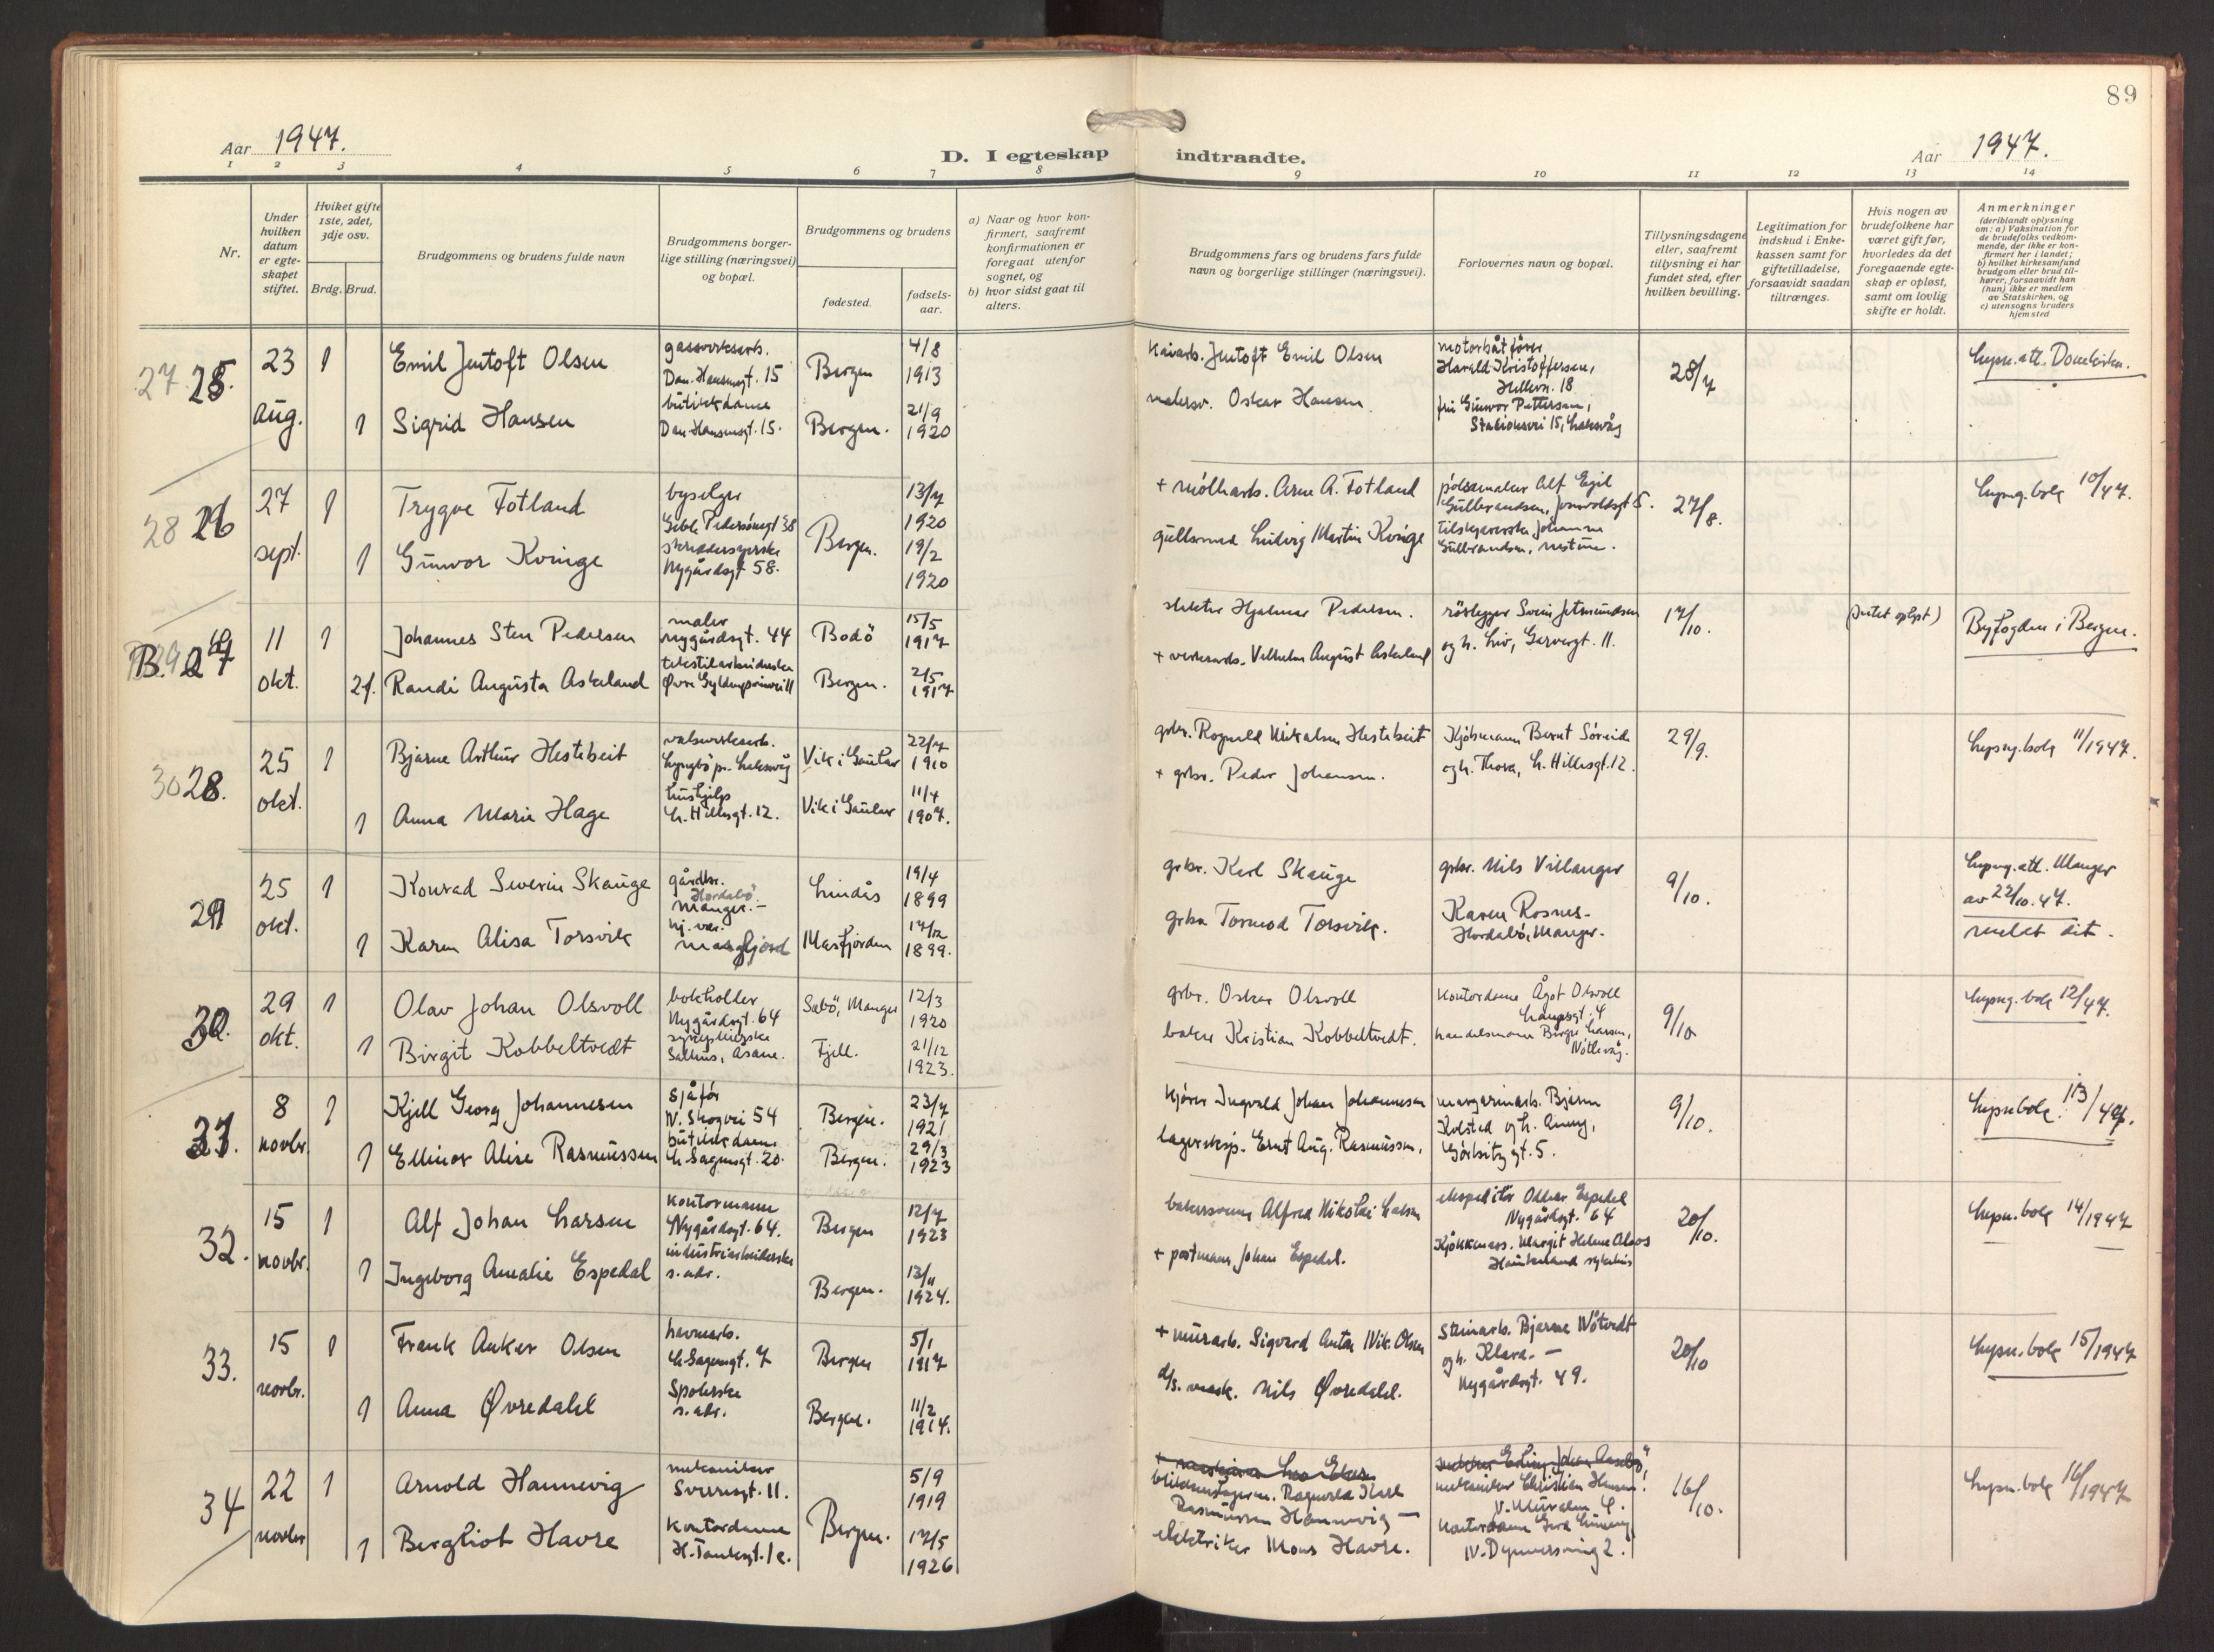 89
Aar 1947.
D. I egteskap indtraadte.
Aar 1947.
1 2 3 4 5 6 7 8 9 10 11 12 13 14
Nr.
Under
hvilken
datum
er egte-
skapet
stiftet.
Hviket gifte
1ste, 2det,
3dje osv.
Brdg. Brud.
Brudgommens og brudens fulde navn
Brudgommens borger-
lige stilling (næringsvei)
og bopæl.
Brudgommens og brudens
fødested.
fødsels-
aar.
a) Naar og hvor kon-
firmert, saafremt
konfirmationen er
foregaat utenfor
sognet, og
b) hvor sidst gaat til
alters.
Brudgommens fars og brudens fars fulde
navn og borgerlige stillinger (næringsvei).
Forlovernes navn og bopæl.
Tillysningsdagene
eller, saafremt
tillysning ei har
fundet sted, efter
hvilken bevilling.
Legitimation for
indskud i Enke-
kassen samt for
giftetilladelse,
forsaavidt saadan
tiltrænges.
Hvis nogen av
brudefolkene har
været gift før,
hvorledes da det
foregaaende egte-
skap er opløst,
samt om lovlig
skifte er holdt.
Anmerkninger
(deriblandt oplysning
om: a) Vaksination for
de brudefolks vedkom-
mende, der ikke er kon-
firmert her i landet;
b) hvilket kirkesamfund
brudgom eller brud til-
hører, forsaavidt han
(hun) ikke er medlem
av Statskirken, og
c) utensogns bruders
hjemsted
27 25. 23 aug. 1
Emil Jentoft Olsen
gassverksarb.
Dan. Hansensgt. 15
Bergen
4/8
1913
Jentoft Emil Olsen
motorbåtfører
Harald Kristoffersen,
18
28/7
lysn. att. Domkirken.
1 Sigrid Hansen
butikkdame
Dan. Hansensgt. 15.
Bergen.
21/9
1920
malersv. Oskar Hansen
fru Gunvor Pettersen,
Stasionsvei 15, Laksvåg
28 26 27 sept. 1
Trygve Fotland
byselger
Geble Pedersønsgt 38
Bergen.
13/7
1920
+ Arne A. Fotland
pølsemaker Alf Egil
Gulbrandsen,
27/8.
lysng. bok 10/47.
1 Gunvor Kvinge
skreddersyerske
Nygårdsgt 58.
19/2
1920
gullsmed Ludvig Martin Kvinge
tilskjærerske Johanne
Gulbrandsen,
B. 27 11 okt. 1
Johannes Sten Pedersen
maler
Nygårdsgt. 44
Bodö
15/5
1917
Hjalmar Pedersen.
rörlegger Svein Jetmundsen
og h. Liv, Garvergt. 11.
17/10.
Byfogden i Bergen.
2f. Randi Augusta Askeland
tekstilarbeiderske
Bergen.
2/5
1917
+ verksarb. Vilhelm August Askeland
30 28. 25 okt. 1
Bjarne Arthur Hestebeit
valseverksarb.
Lyngbö pr. Laksevåg
Vik i Gaular
22/7
1910
grbr. Hestebeit
Kjöbmann Bernt Söreide
og h. Thora, L. Hillesgt. 12.
29/9.
lysng. bok 11/1947.
1 Anna Marie Hage
hushjelp
L. Hillesgt. 12.
Vik i Gaular
11/4
1907.
+ grbr. Peder Johansen.
29 25 okt. 1
Konrad Severin Skauge
gårdbr.
Hordabö
Manger.-
Lindås
19/4
1899
grbr. Karl Skauge
grbr. Nils Villanger
9/10.
lysng. att. Manger
av 22/10. 47.
meldt dit.
1 Karen Alisa Torsvik
hj. vær.
Masfjord
Masfjorden
17/12
1899.
grbr. Tormod Torsvik.
Karen Rosnes-
Hordabö, Manger.
30. 29 okt. 1
Olav Johan Olsvoll
bokholder
Nygårdsgt. 64
Sæbö, Manger
12/3
1920
grbr. Oskar Olsvoll
kontordame Ågot Olsvoll
9/10
lysng. bok 12/47.
1 Birgit Kobbeltvedt
sykepleierske
Salhus, Åsane.
Fjell.
21/12
1923.
baker Kristian Kobbeltvedt.
handelsmann Birger Larsen,
31. 8 novbr. 1
Kjell Georg Johannesen
sjåför
N. Skogvei 54
Bergen.
23/7
1921
kjører Ingvald Johan Johannesen
margarinarb. Bjarne
Kolstad og h. Anny,
Görbitzgt. 5.
9/10.
lysn. bok 13/47.
1 Ellinor Alise Rasmussen
butikkdame
L. Sagensgt. 20.
Bergen.
29/3
1923
lagereksp. Ernst Aug. Rasmussen.
32. 15 novbr. 1
Alf Johan Larsen
kontormann
Nygårdsgt. 64.
Bergen
12/7
1923
bakersvenn Alfred Nikolai Larsen
ekspeditör Oddvar Espedal
Nygårdsgt. 64
20/10.
lysn. bok 14/1947
1 Ingeborg Amalie Espedal
industriarbeiderske
s. adr.
Bergen.
13/11
1924.
+ postmann Johan Espedal.
Kjøkkenass. Margit Helene
Haukeland sykehus
33. 15 novbr. 1
Frank Anker Olsen
havnearb.
L. Sagensgt. 7
Bergen
5/1
1917
+ murarb. Sigvard Anton Nik. Olsen
Steinarb. Bjarne Nötvedt
og h. Klara. -
Nygårdsgt. 49.
20/10
lysn. bok 15/1947
1 Anna Øvredahl
Spolerske
s. adr.
Bergen.
11/2
1914.
d/s. mask. Nils Øvredahl.
34 22 novbr 1
Arnold Hannevig
mekaniker
Sverresgt. 11.
Bergen.
5/9
1919
Ragnvald Karl
Rasmussen Hannevig -
mekaniker Christian Hansen.
16/10.
lysn. bok 16/1947
1 Bergliot Havre
kontordame
H. Tanksgt. 1 c.
17/5
1926
elektriker Mons Havre.
kontordame Gerd